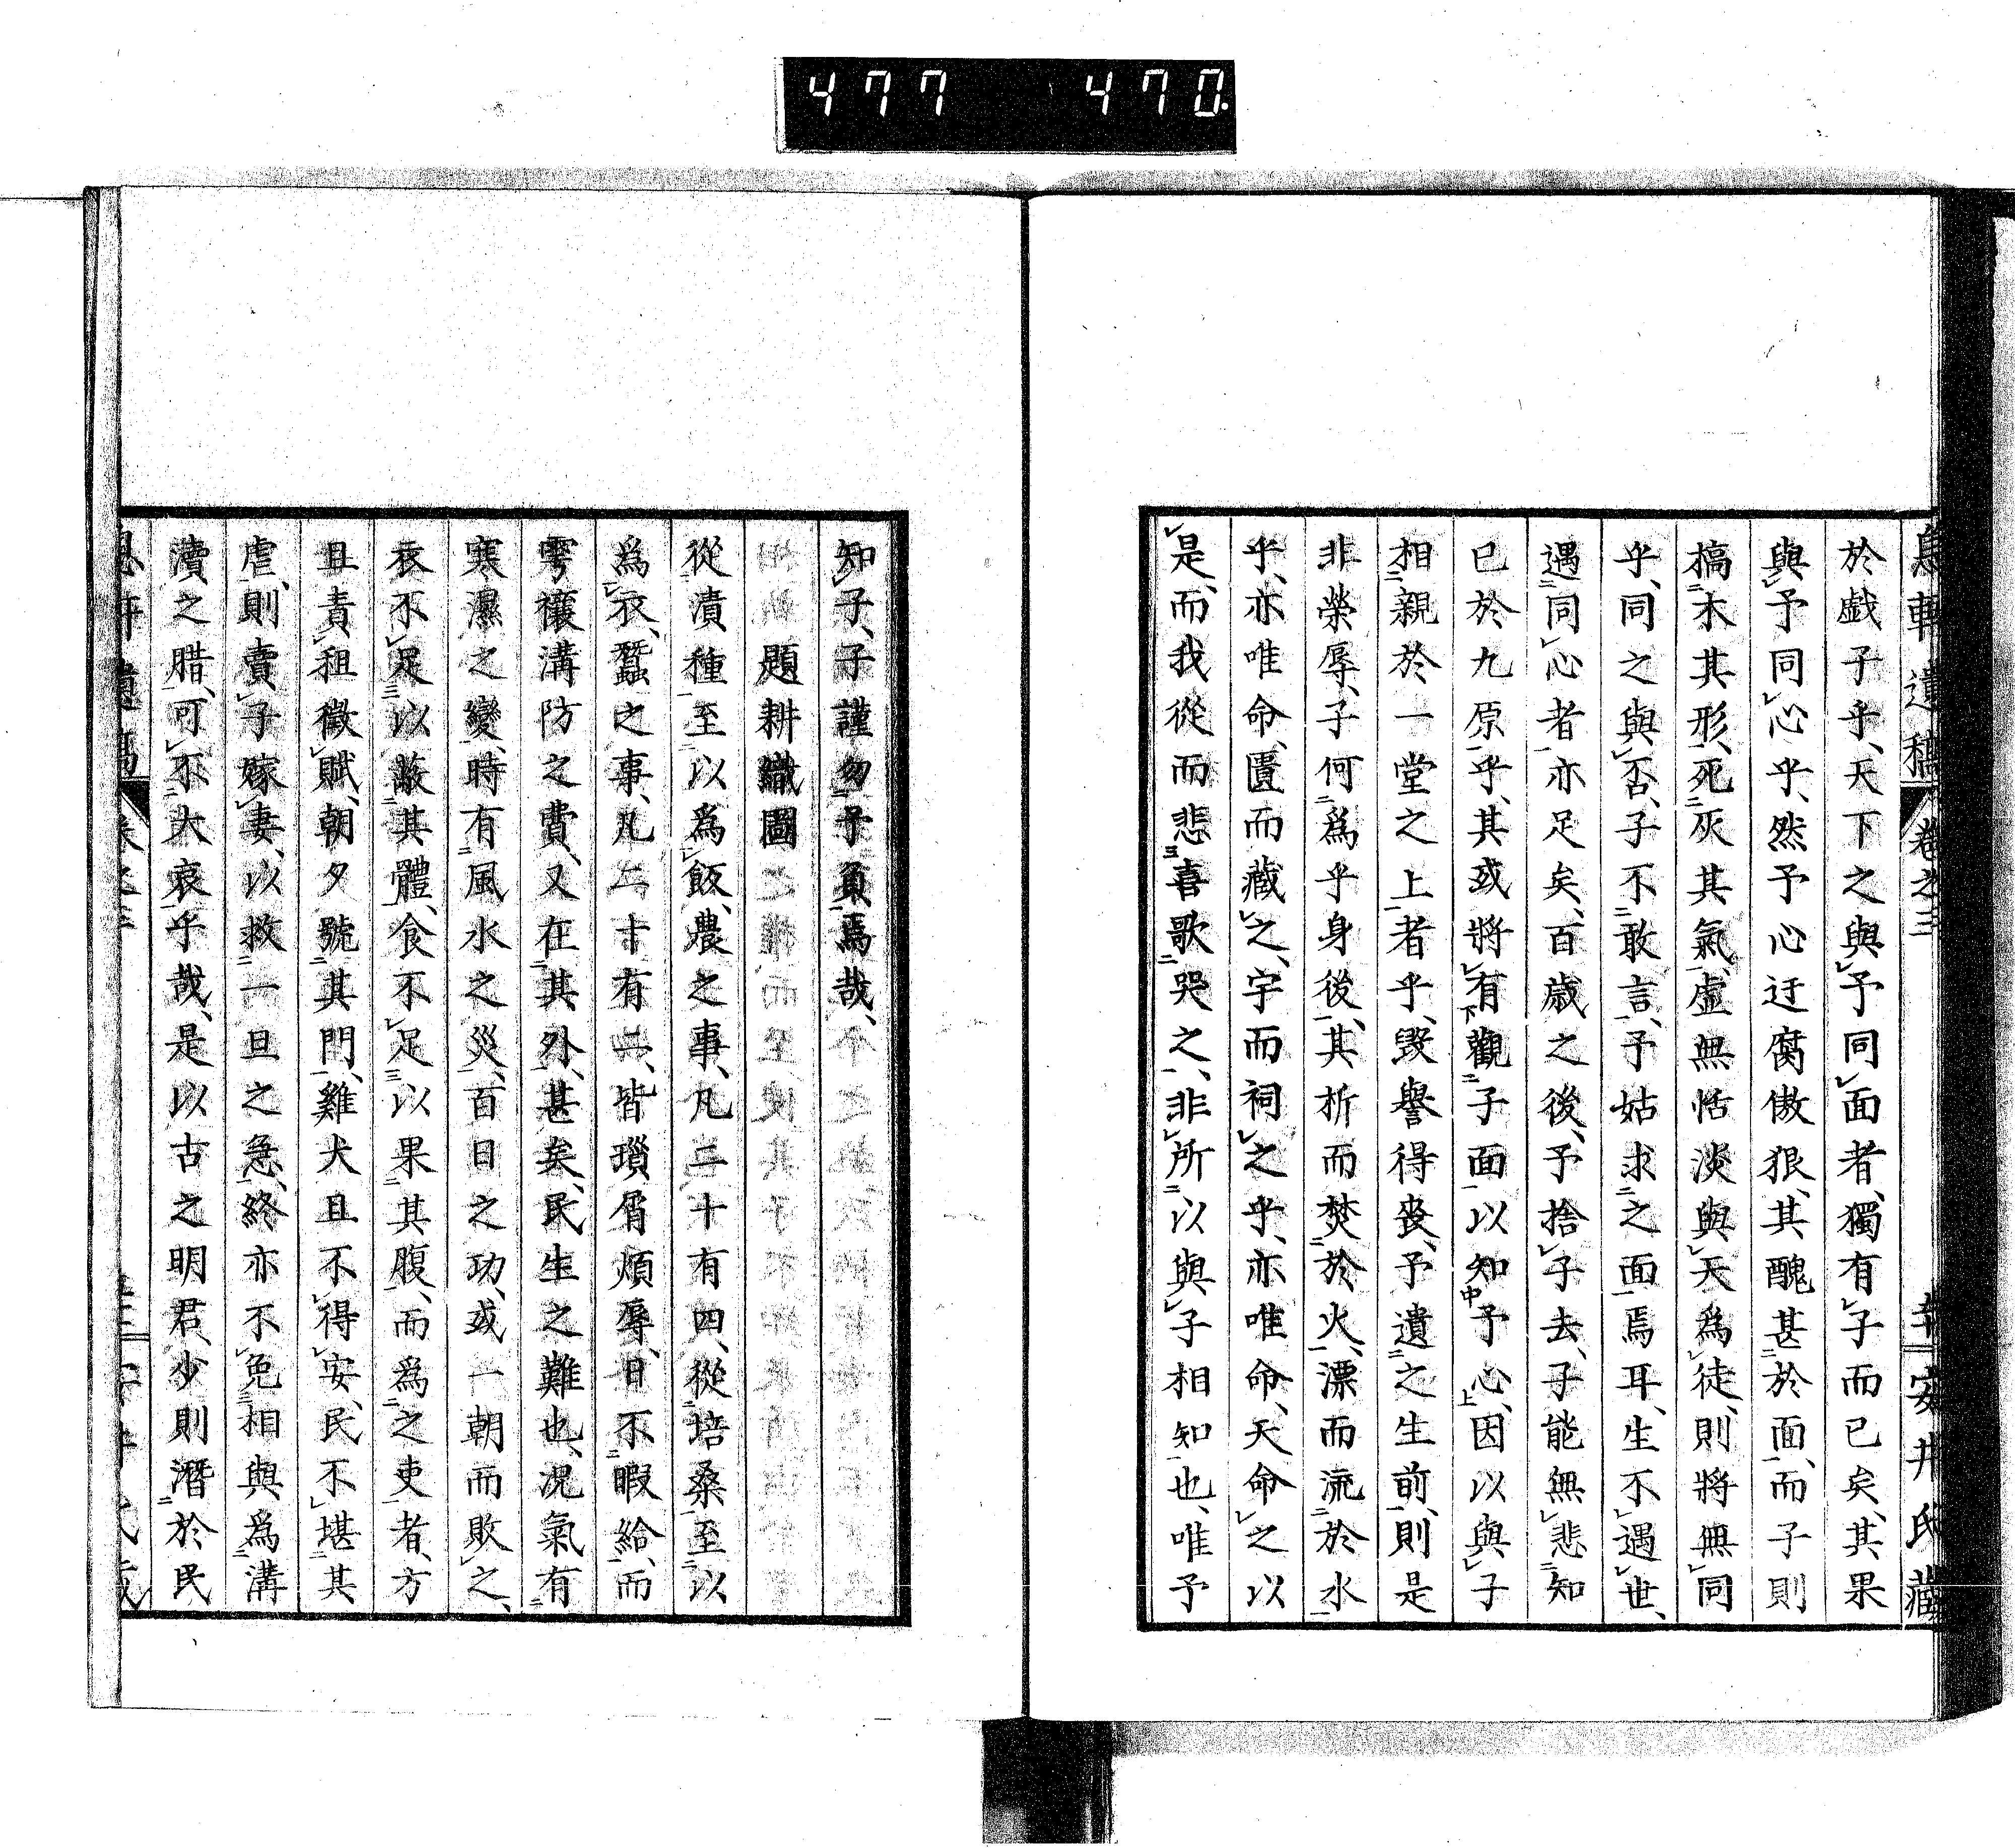 477 470
軒遺稿 卷之三 安井氏藏
於戲子乎、天下之與予同面者、獨有子而已矣、其果
與予同心乎、然予心迂腐傲狠、其醜甚於面、而子則
槁木其形、死灰其氣、虛無恬淡與天爲徒、則將無同
乎、同之與否、子不敢言、予姑求之面焉耳、生不遇世、
遇同心者亦足矣、百歲之後、予捨子去、子能無悲知
已於九原乎、其或將有觀子面以知予心、因以與子
相親於一堂之上者乎、毀譽得喪、予遺之生前、則是
非榮辱、子何爲乎身後、其析而焚於火、漂而流於水
乎、亦唯命、匱而藏之、宇而祠之乎、亦唯命、天命之以
是、而我從而悲喜歌哭之、非所以與子相知也、唯予
知子、子謹勿予負焉哉、
題耕織圖
從漬種至以爲飯、農之事、凡二十有四、從培桑至以
爲衣、蠶之事、凡二十有二、皆瑣屑煩辱、日不暇給、而
雩禳溝防之費、又在其外、甚矣、民生之難也、況氣有
寒濕之變、時有風水之災、百日之功、或一朝而敗之、
衣不足以蔽其體、食不足以果其腹、而爲之吏者、方
且責租徵賦、朝夕號其門、雞犬且不得安、民不堪其
虐、則賣子嫁妻、以救一旦之急、終亦不免相與爲溝
瀆之腊、可不大哀乎哉、是以古之明君、少則潛於民